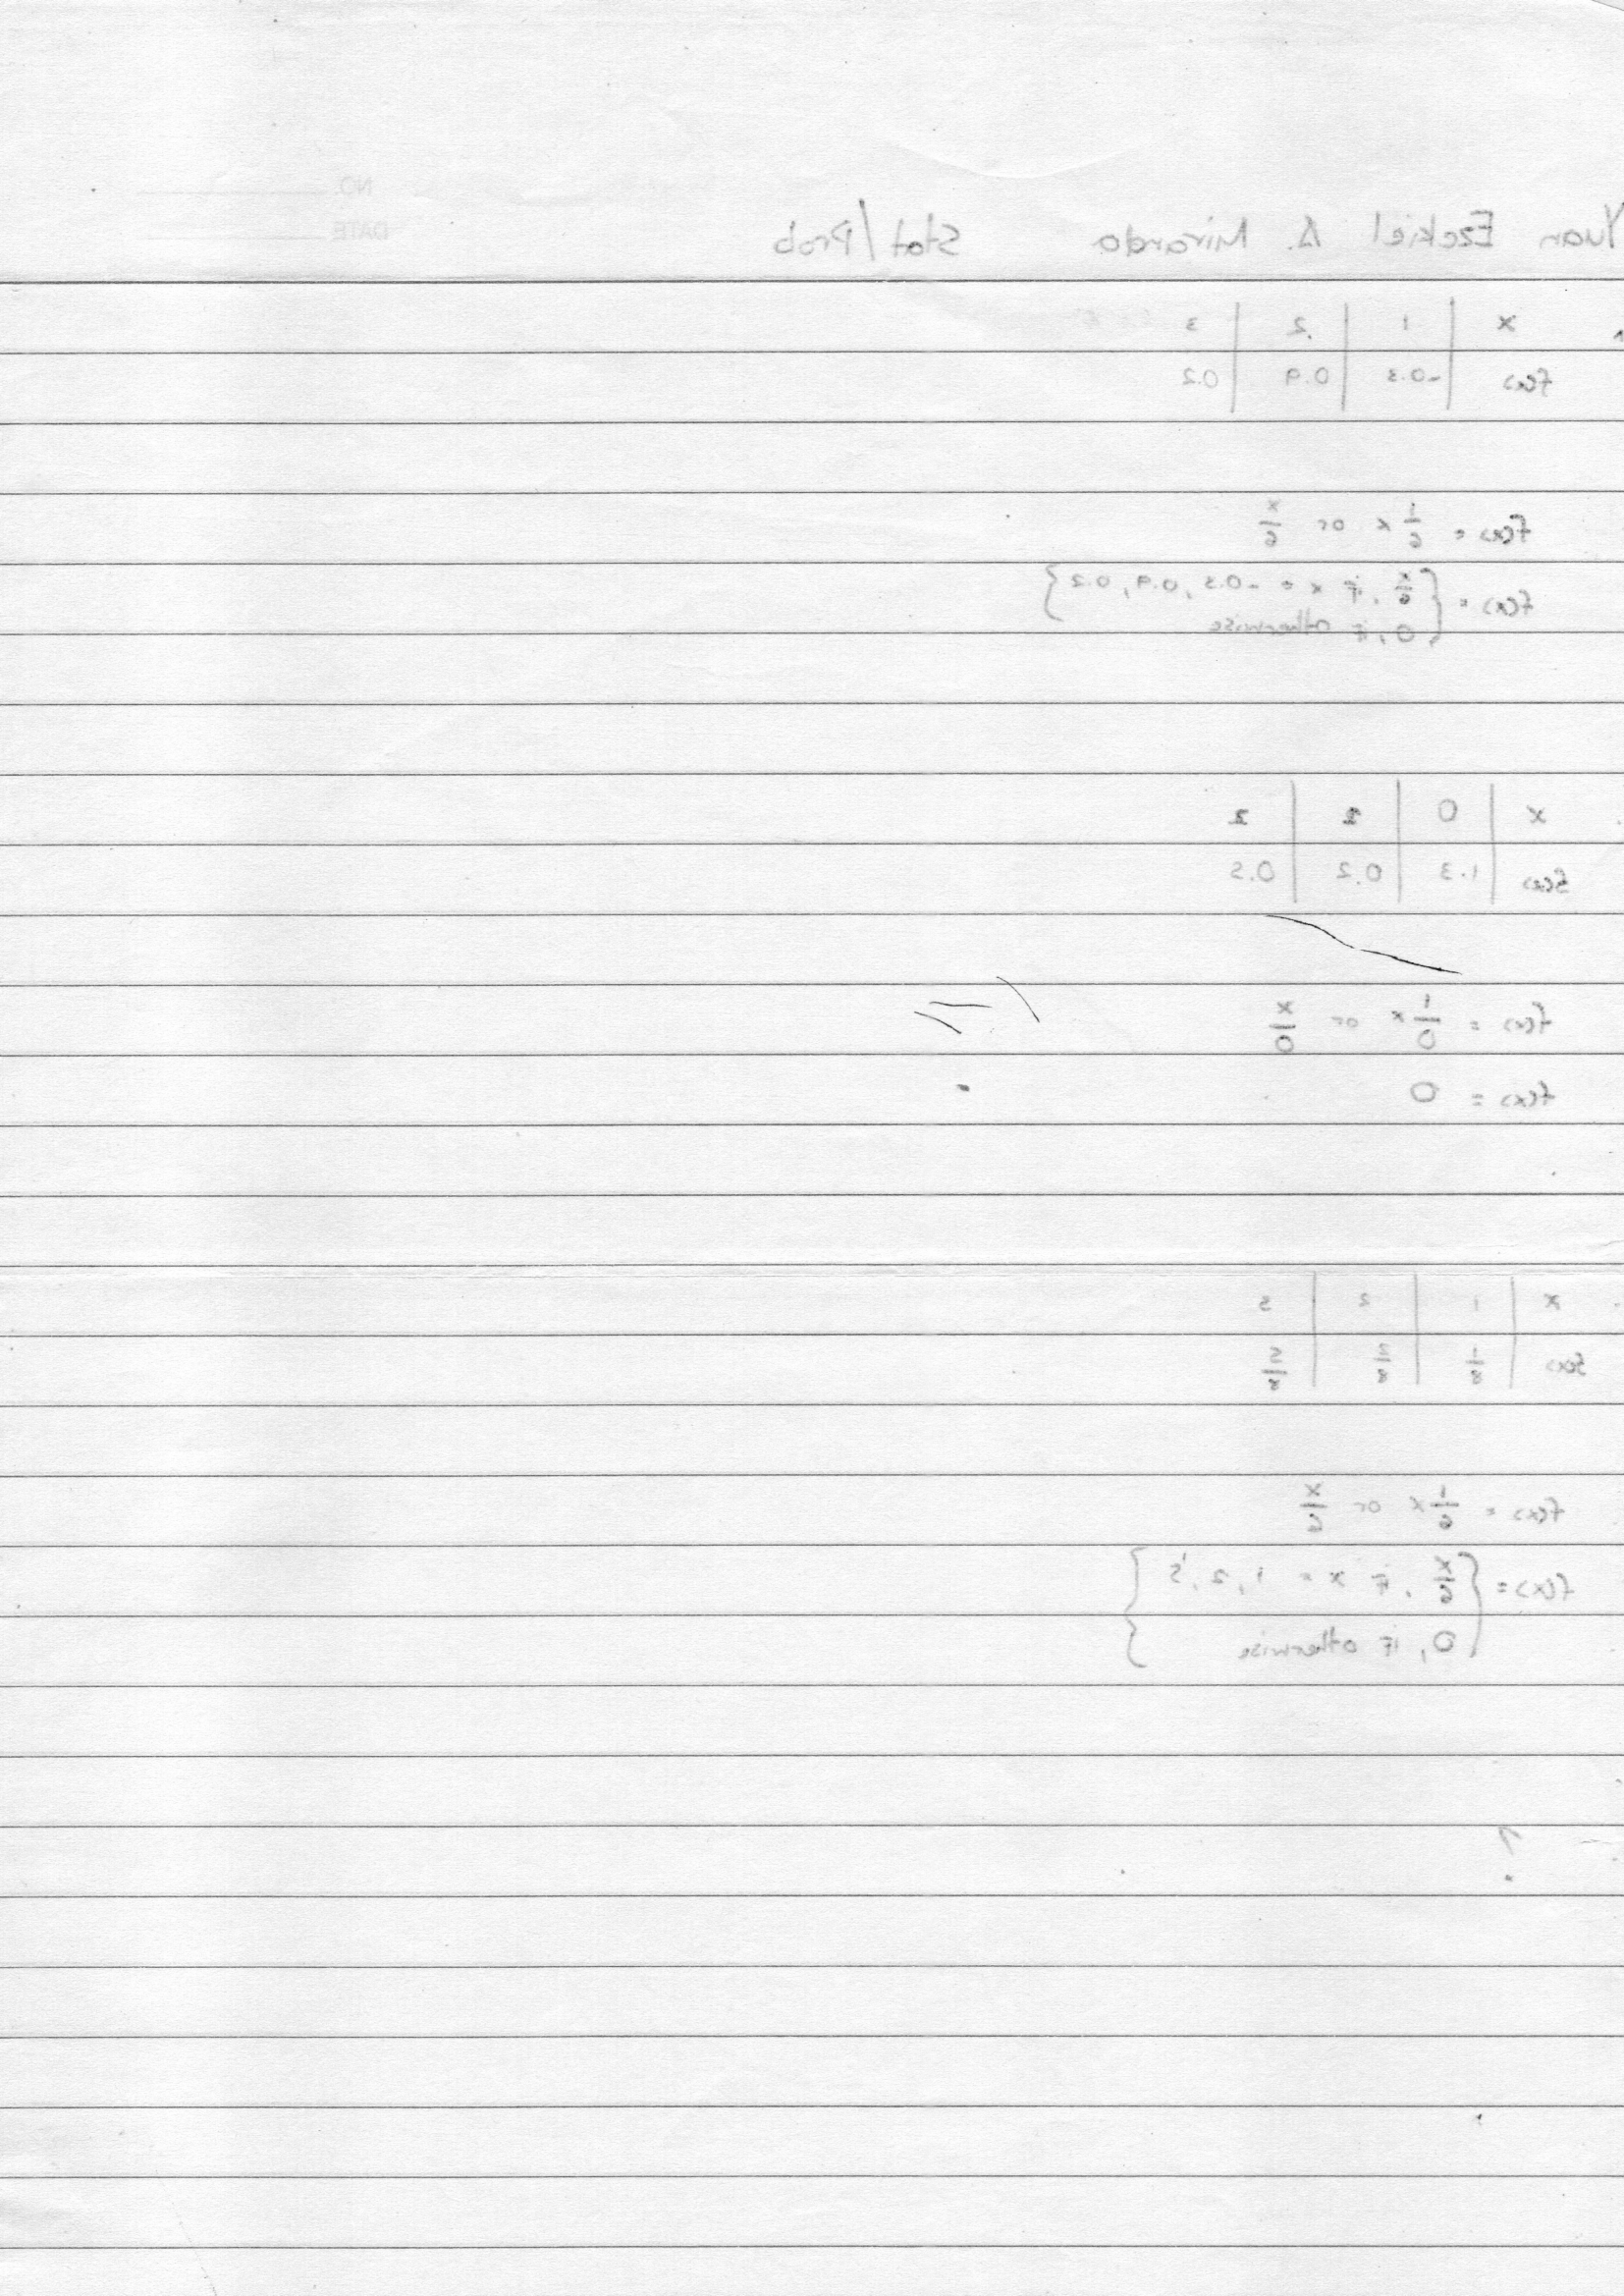 NO.
DATE
Yuan Ezekiel A. Miranda Stat/Prob
x 1 2 3
f(x) -0.3 0.9 0.2
f(x) = 1/6 x or x/6
f(x) = { x/6, if x = -0.3, 0.9, 0.2 }
0, if otherwise
x 0 1 2
f(x) 1.3 0.2 0.5
f(x) = 1/0 x or x/0
f(x) = 0
x 1 2 5
f(x) 1/8 2/8 5/8
f(x) = 1/6 x or x/6
f(x) = { x/6, if x = 1, 2, 5 }
0, if otherwise
?